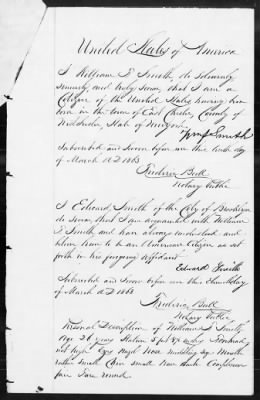 United States of America
I William F Smith, do solemnly
sincerely and truly swear, that I am a
Citizen of the United States having been
born in the town of East Chester, County of
Westchester, State of
Wm F Smith
Subscribed and Sworn before me this tenth day
of March AD 1863
Frederic Bull
Notary Public
I Edward Smith of the City of Brooklyn
do swear, that I am acquainted with William
F Smith and have always understood and
him to be an American Citizen as set
forth in his foregoing affidavit
Edward Smith
Subscribed and Sworn before me this day
of March AD 1863
Frederic Bull
Notary Public
Personal Description of William F Smith
Age 26 years Stature 5 feet Forehead
not high Eyes Nose Mouth
rather small Chin small Hair Complexion
fair Face round